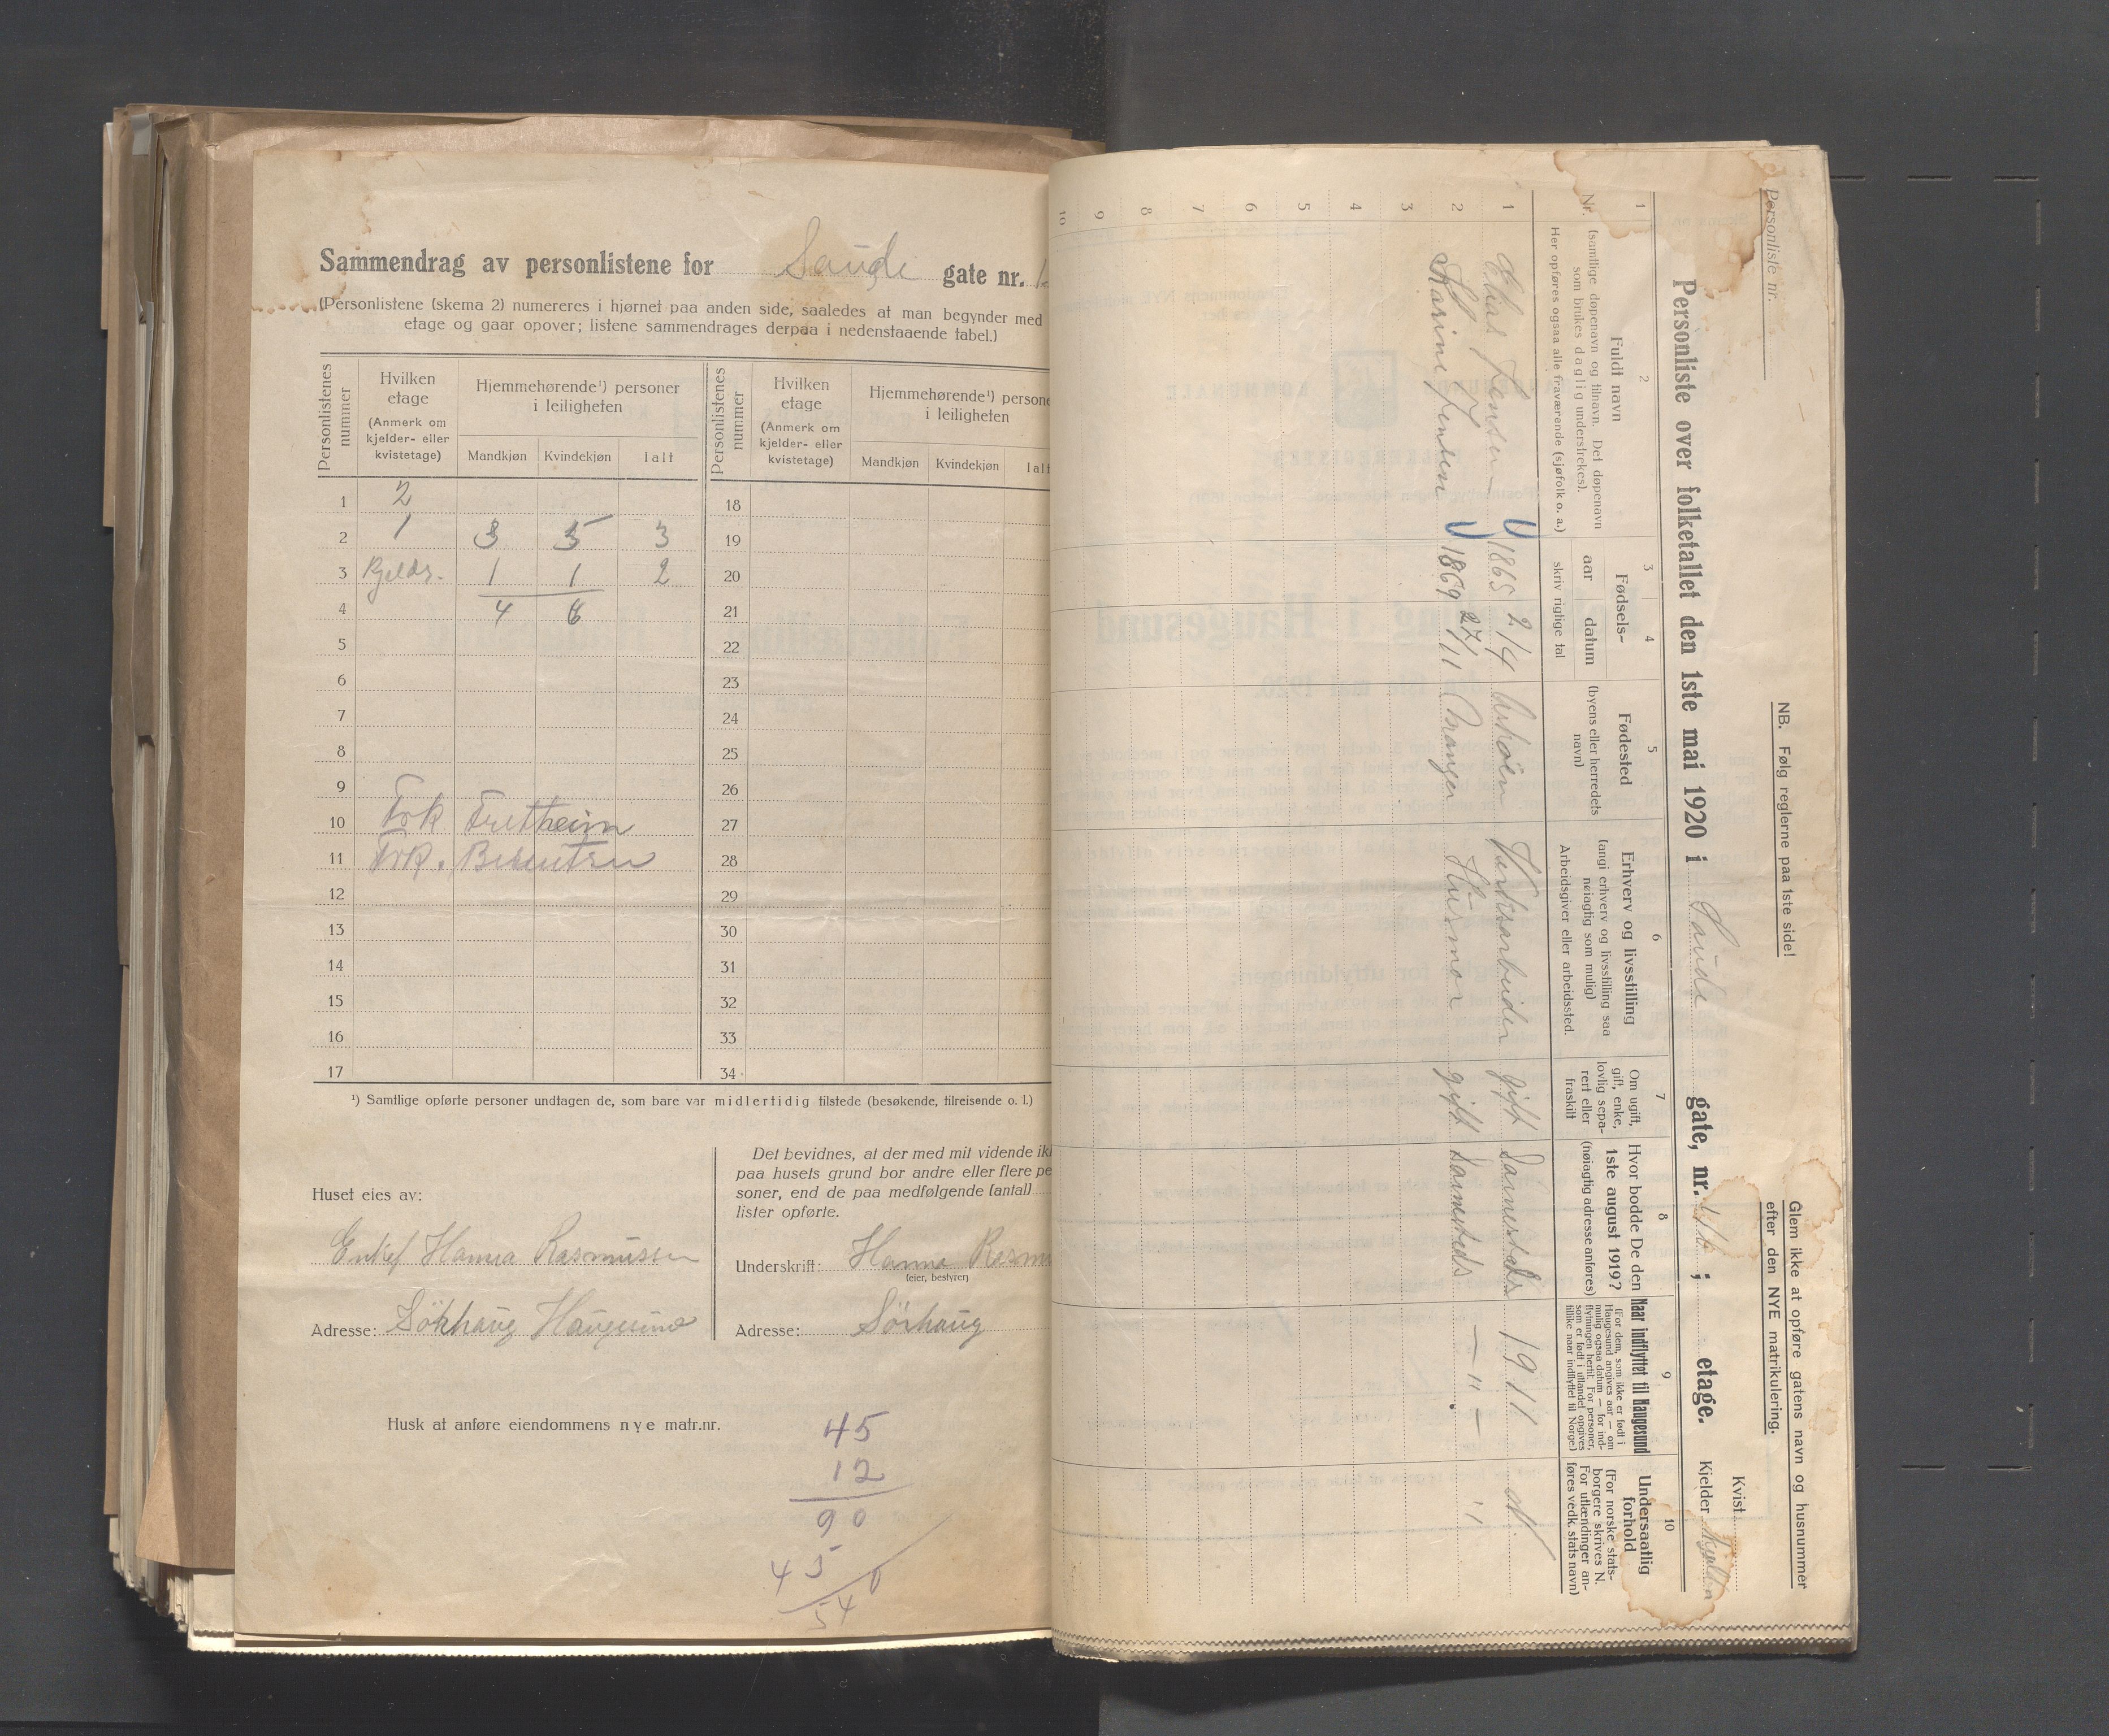 Sammendrag av personlistene for Saude gate nr.
(Personlistene (skema 2) numereres i hjørnet paa anden side, saaledes at man begynder med
etage og gaar opover; listene sammendrages derpaa i nedenstaaende tabel.)
Personlistenes nummer
Hvilken etage
(Anmerk om kjelder- eller kvistetage)
Hjemmehørende¹) personer i leiligheten
Mandkjøn Kvindekjøn Ialt
Personlistenes nummer
Hvilken etage
(Anmerk om kjelder- eller kvistetage)
Hjemmehørende¹) persone
i leiligheten
Mandkjøn Kvindekjøn Ialt
1 2 18
2 1 3 5 3 19
3 Kjeldr. 1 1 2 20
4 4 6 21
5 22
6 23
7 24
8 25
9 26
10 Frk Fretheim 27
11 Frk. Berentsen 28
12 29
13 30
14 31
15 32
16 33
17 34
¹) Samtlige opførte personer undtagen de, som bare var midlertidig tilstede (besøkende, tilreisende o. l.)
Huset eies av:
Enkef Hanna Rasmussen
Adresse: Sörhaug Haugesund
Det bevidnes, at der med mit vidende ik
paa husets grund bor andre eller flere pe
soner, end de paa medfølgende (antal)
lister opførte.
Underskrift: Hanna Rasmu
(eier, bestyrer)
Adresse: Sörhaug
Husk at anføre eiendommens nye matr.nr.
45
12
90
45
540
Personliste nr.
NB. Følg reglerne paa 1ste side!
Glem ikke at opføre gatens navn og husnummer
efter den NYE matrikulering.
Kvist
Personliste over folketallet den 1ste mai 1920 i Saude gate, nr. ; etage. Kjelder
1 2 3 4 5 6 7 8 9 10
Nr.
Fuldt navn
(samtlige døpenavn og tilnavn. Det døpenavn
som brukes daglig understrekes).
Her opføres ogsaa alle fraværende (sjøfolk o. a.)
Fødsels-
aar datum
skriv rigtige tal
Fødested
(byens eller herredets
navn)
Erhverv og livsstilling
(angi erhverv og livsstilling saa
nøiagtig som mulig)
Arbeidsgiver eller arbeidssted.
Om ugift,
gift, enke,
lovlig sepa-
rert eller
fraskilt
Hvor bodde De den
1ste august 1919?
(nøiagtig adresse anføres)
Naar indflyttet til Haugesund
(For dem, som ikke er født i
Haugesund angives aar — om
mulig ogsaa datum — for ind-
flytningen hertil. For personer,
som er født i utlandet opgives
tillike naar indflyttet til Norge.)
Undersaatlig
forhold
(For norske stats-
borgere skrives N.
For utlændinger an-
føres vedk. stats navn)
1 Elias Jensen 1865 2/4 Askøen Verksarbeider gift Samesteds 1911 N
2 Karine Jensen 1869 27/11 Manger Husmor gift Samesteds — " — "
3
4
5
6
7
8
9
10